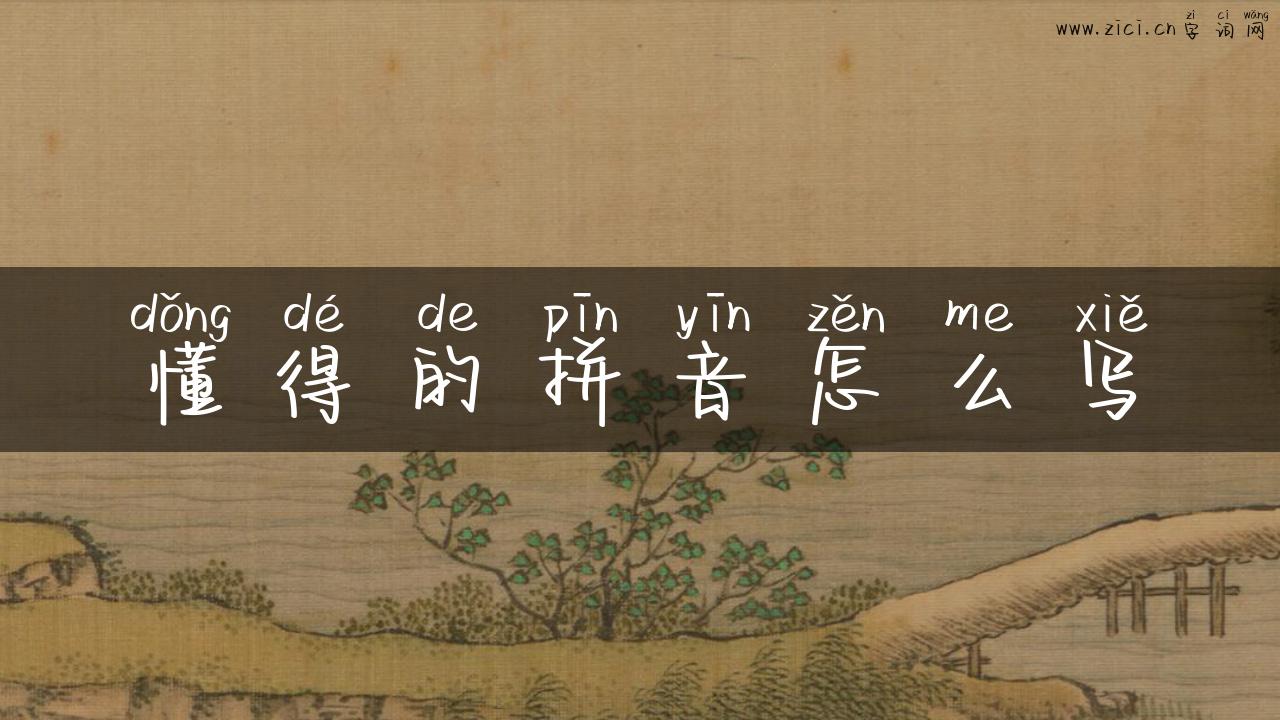 zì cí wǎng
www.zici.cn 字 词 网
dǒng dé de pīn yīn zěn me xiě
懂 得 的 拼 音 怎 么 写